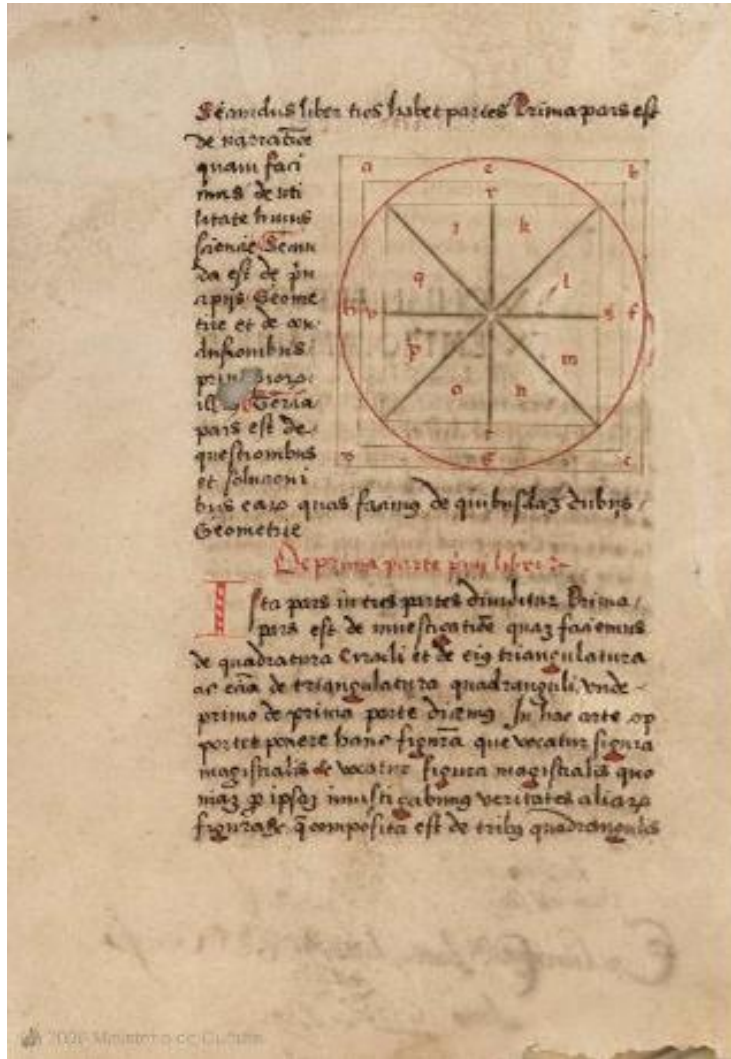 Secundus liber tres habet partes Prima pars est
de narratiōe
quam faci
mus de uti
litate huius
sciencie Secun
da est de pͥn
cipijs Geome
trie et de con
clusionibus
Tercia
pars est de
questionibus
et soluconi
bus earꝝ quas facimꝰ de quibusdaʒ dubijs
Geometrie
De prima parte pͥmi libri
Ista pars in tres partes diuiditur Prima
pars est de inuestigatiōe quaʒ faciemus
de quadratura Circuli et de eiꝰ triangulatura
ac eciā de triangulatura quadranguli, vnde
primo de prima parte dicemꝰ In hac arte op
portet ponere hanc figurā que vocatur figura
magistralis & vocatur figura magistralis quo
niaʒ ꝑ ipsaʒ inuestigabimꝰ veritates aliarꝝ
figurarꝝ q̄ composita est de tribꝰ quadrangulis
a e b
r
i k
q l
h v s f
p m
o n
t
d g c
2006 Ministerio de Cultura